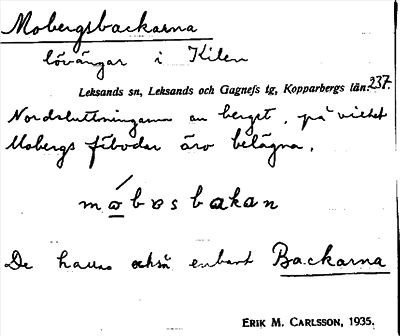 Mobergsbackarna
lövängar i Kilen
Leksands sn, Leksands och Gagnefs tg, Kopparbergs län. 237.
Nordsluttningarna av berget, på vilket
Mobergs fäbodar äro belägna.
De kallas också enbart Backarna
ERIK M. CARLSSON, 1935.